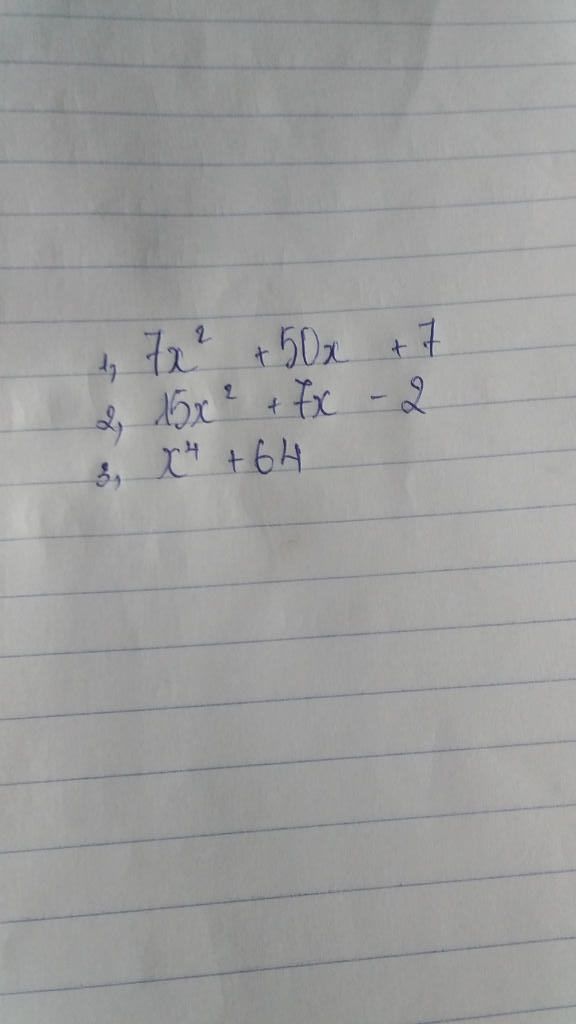 1, 7x² + 50x + 7
2, 15x² + 7x - 2
3, x⁴ + 64